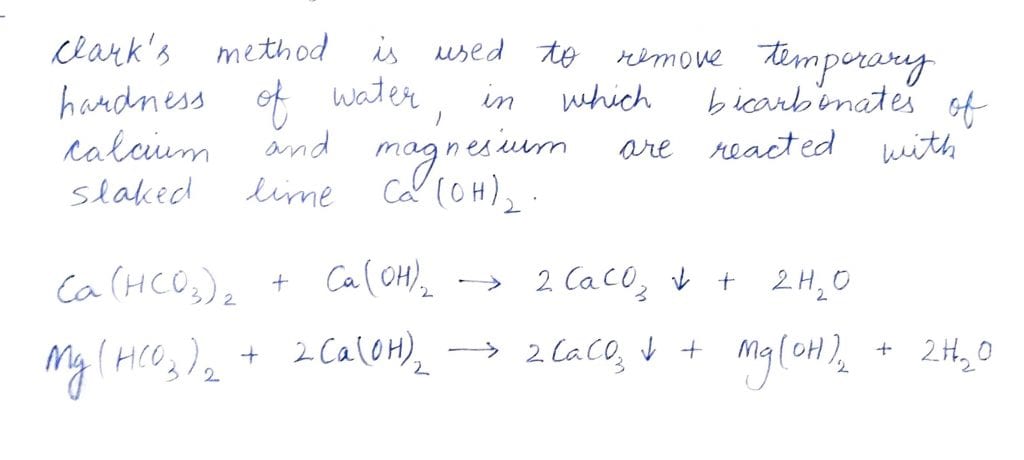 Clark's method is used to remove temporary
hardness of water, in which bicarbonates of
calcium and magnesium are reacted with
slaked lime Ca(OH)₂.
Ca(HCO₃)₂ + Ca(OH)₂ → 2CaCO₃ ↓ + 2H₂O
Mg(HCO₃)₂ + 2Ca(OH)₂ → 2CaCO₃ ↓ + Mg(OH)₂ + 2H₂O